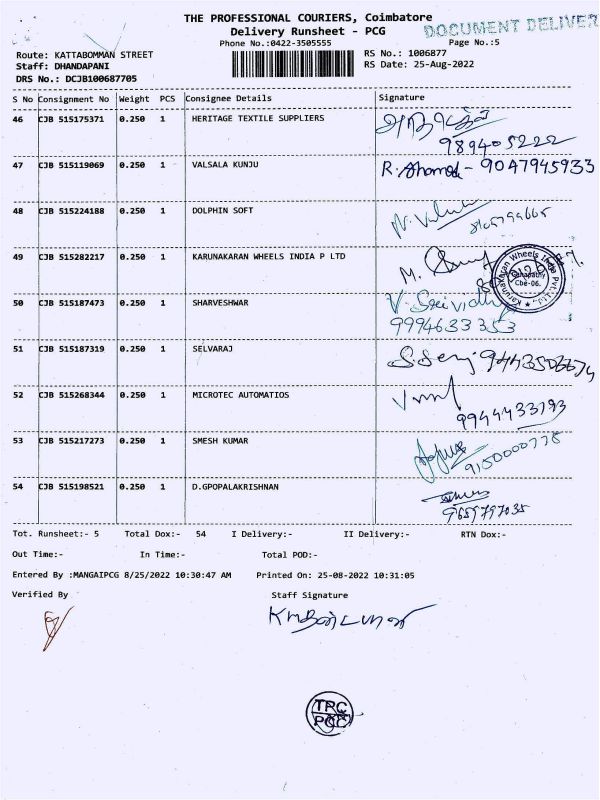 THE PROFESSIONAL COURIERS, Coimbatore
DOCUMENT DELIVER
Delivery Runsheet - PCG
Phone No.:0422-3505555
Page No.:5
Route: KATTABOMMAN STREET
RS No.: 1006877
Staff: DHANDAPANI
RS Date: 25-Aug-2022
DRS No.: DCJB100687705
S No Consignment No Weight PCS Consignee Details Signature
46 CJB 515175371 0.250 1 HERITAGE TEXTILE SUPPLIERS
989405222
47 CJB 515119069 0.250 1 VALSALA KUNJU R. Ahamed - 9047945933
48 CJB 515224188 0.250 1 DOLPHIN SOFT
49 CJB 515282217 0.250 1 KARUNAKARAN WHEELS INDIA P LTD M.
Karunakaran Wheels India Pvt. Ltd.,
Ganapathy
Cbe-06.
50 CJB 515187473 0.250 1 SHARVESHWAR V. Srividhya
9994633353
51 CJB 515187319 0.250 1 SELVARAJ
52 CJB 515268344 0.250 1 MICROTEC AUTOMATIOS
9944433193
53 CJB 515217273 0.250 1 SMESH KUMAR
9150000778
54 CJB 515198521 0.250 1 D.GPOPALAKRISHNAN
9659797035
Tot. Runsheet:- 5 Total Dox:- 54 I Delivery:- II Delivery:- RTN Dox:-
Out Time:- In Time:- Total POD:-
Entered By :MANGAIPCG 8/25/2022 10:30:47 AM Printed On: 25-08-2022 10:31:05
Verified By Staff Signature
TPC
PCG